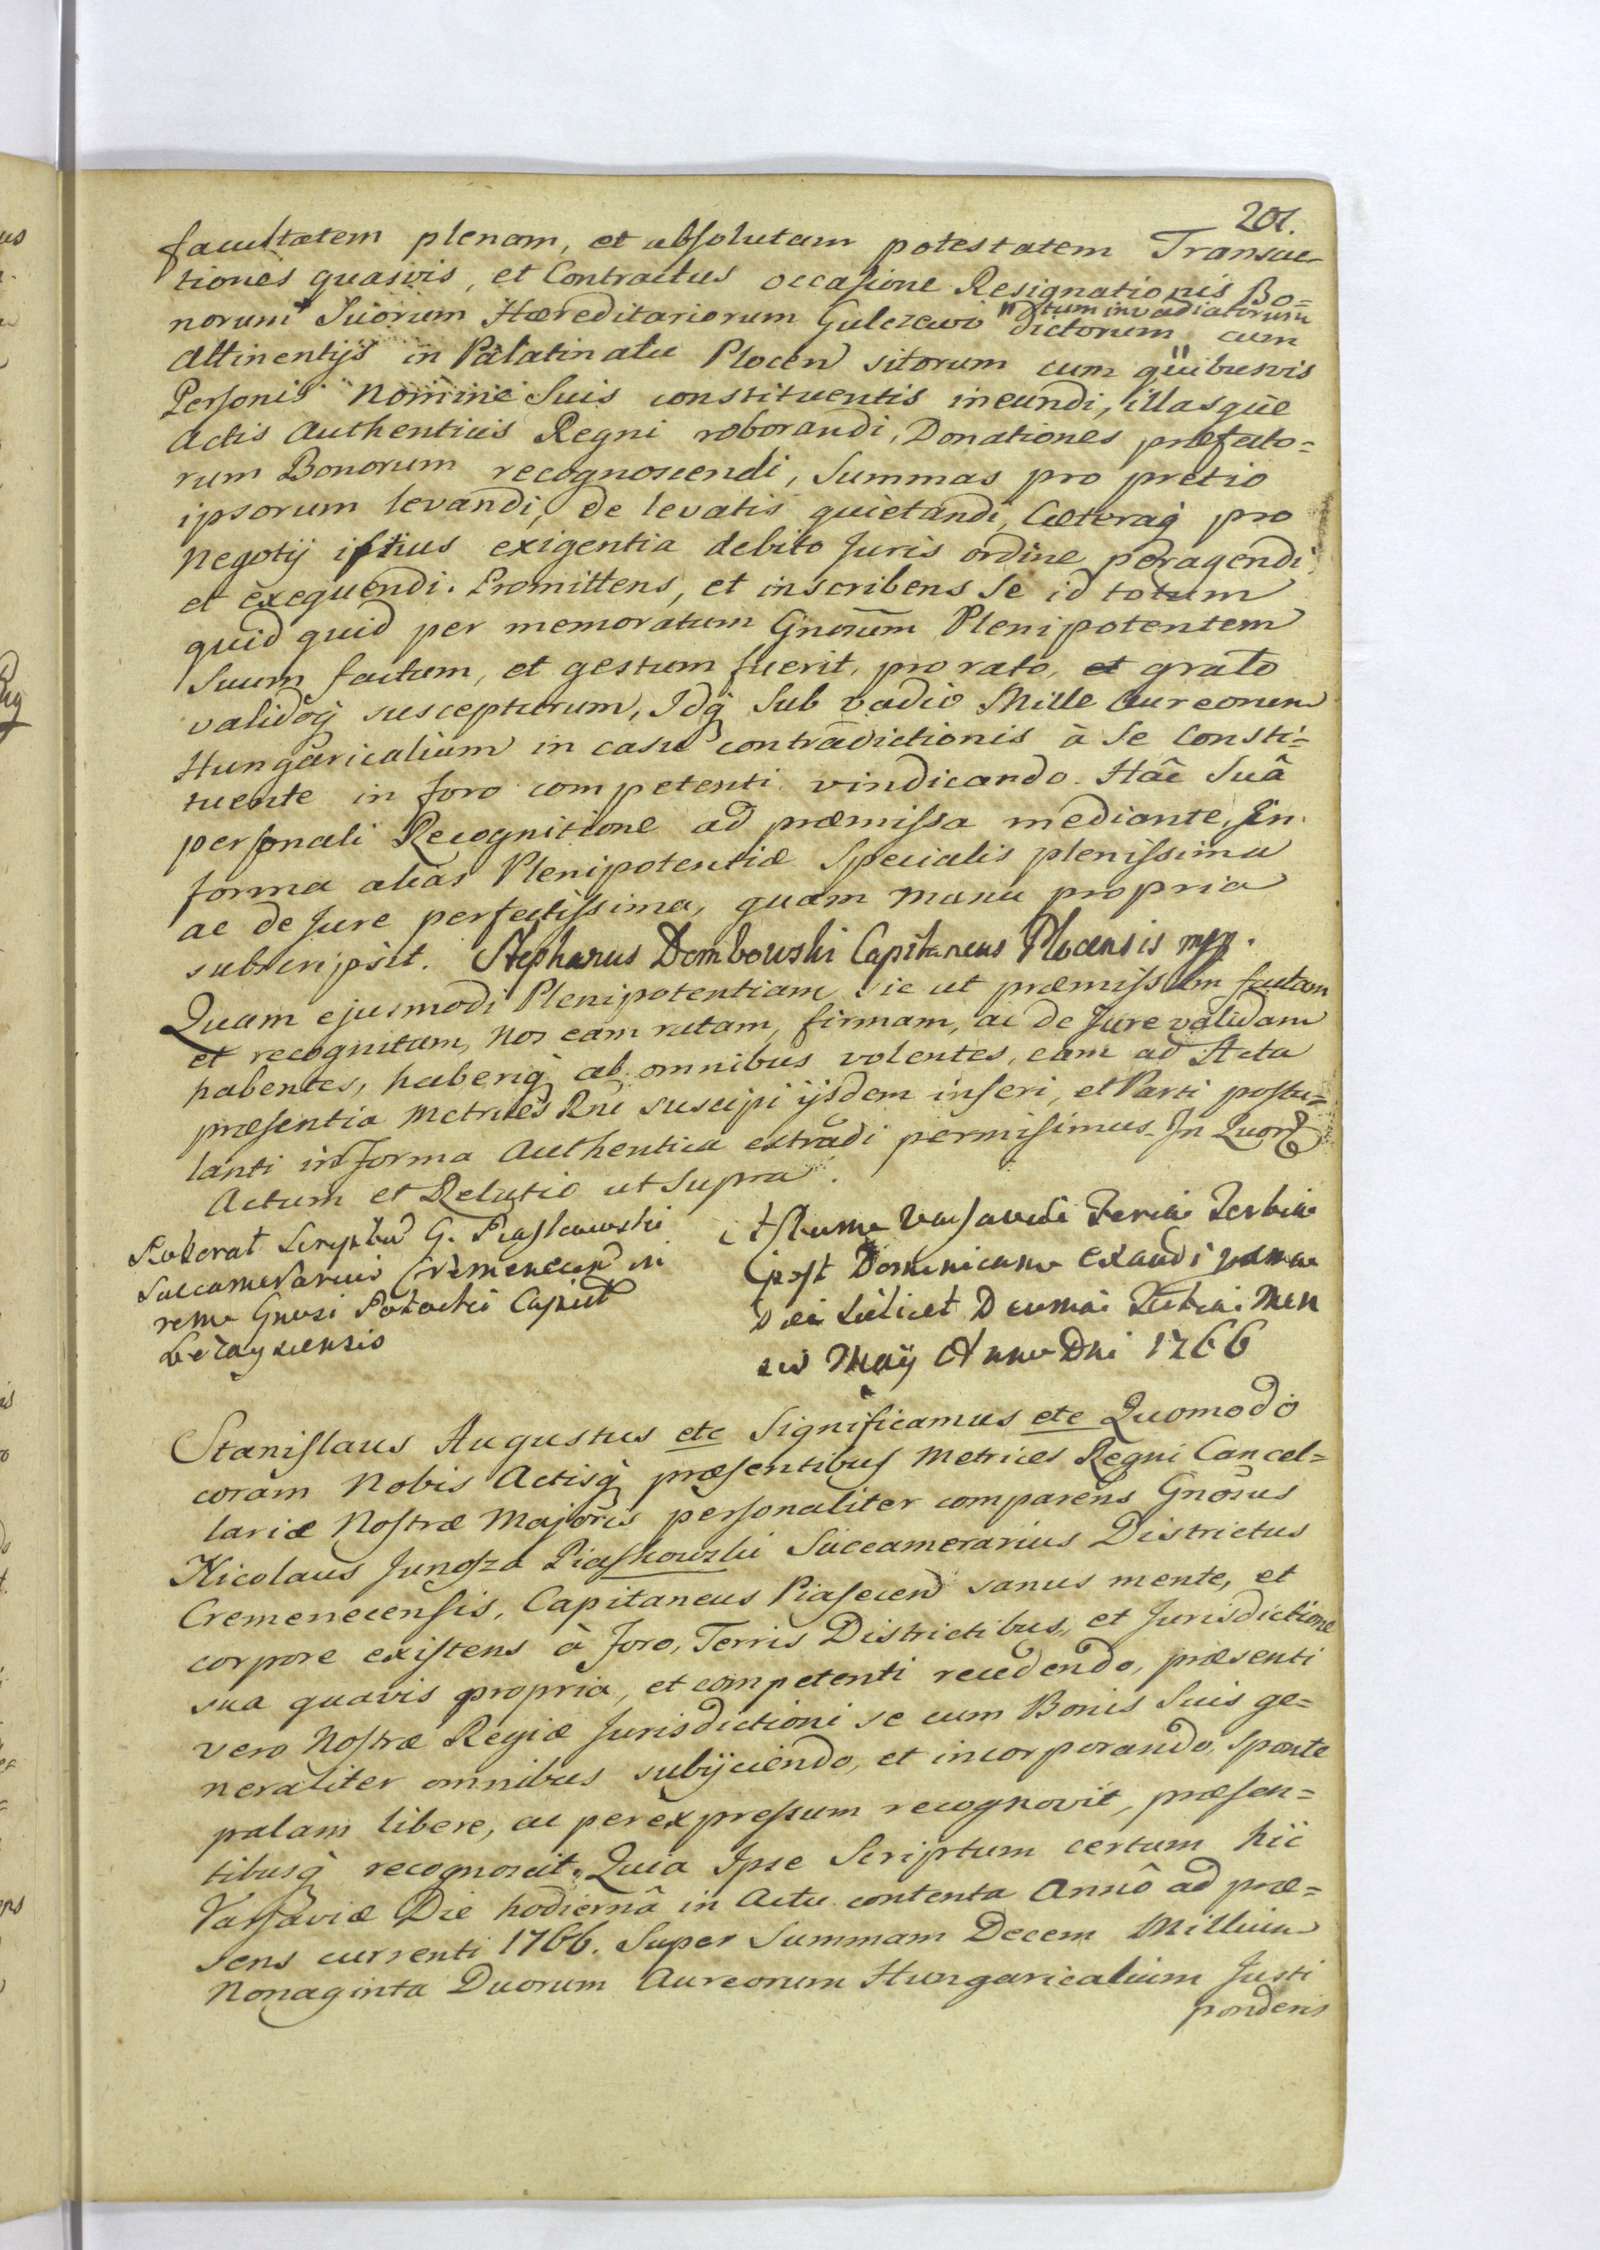 201.
facultatem plenam, et absolutam potestatem Transac-
tiones quasvis, et Contractus occasione Resignationis Bo=
norum Suorum Hæreditariorum Gulczewo dictorum cum
tum invadiatorum
Attinentijs in Palatinatu Plocen sitorum cum quibusvis
Personis Nomine Suis constituentis ineundi, illasque
Actis Authenticis Regni roborandi, Donationes præfato=
rum Bonorum recognoscendi, Summas pro pretio
ipsorum levandi, de levatis quietandi, Cæteraq́ pro
Negotij istius exigentia debito Juris ordine peragendi,
et exequendi. Promittens, et inscribens Se id totum
quid quid per memoratum Gnosum Plenipotentem
Suum factum, et gestum fuerit, pro rato, et grato
validoq́ suscepturum, Idq́ Sub vadio Mille Aureorum
Hungaricalium in casu contradictionis à Se Consti=
tuente in foro competenti vindicando. Hâc Suâ
personali Recognitione ad præmissa mediante, in
forma alias Plenipotentiæ Specialis plenissima
ac de Jure perfectissima, quam manu propria
subscripsit. Stephanus Dombowski Capitaneus Plocensis mpp.
Quam ejusmodi Plenipotentiam sic ut præmissum factam
et recognitam, Nos eam ratam, firmam, ac de Jure validam
habentes, haberiq́ ab omnibus volentes, eam ad Acta
præsentia Metrices Rni suscipi ijsdem inseri, et Parti postu=
lanti in forma Authentica extradi permisimus. In Quor
Actum et Relatio ut Supra.
Roborat Scryptu G. Piaskowski
Succamerarius Cremenecen in
rem Gnosi Potocki Capit

Actum Varsaviæ Feria Tertia
post Dominicam Exaudi
Die Scilicet Decima Tertia Men
sis Maij Anno Dni 1766
Stanislaus Augustus etc Significamus etc Quomodo
coram Nobis Actisq́ præsentibus Metrices Regni Cancel=
lariæ Nostræ Majoris personaliter comparens Gnosus
Nicolaus Junosza Piaskowski Succamerarius Districtus
Cremenecensis, Capitaneus Piasecen sanus mente, et
corpore existens à foro, Terris Districtibus, et Jurisdictione
sua quavis propria, et competenti recedendo, præsenti
vero Nostræ Regiæ Jurisdictioni se cum Bonis Suis ge=
neraliter omnibus subijciendo, et incorporando, Sponte
palam libere, ac per expressum recognovit, præsen=
tibusq́ recognoscit. Quia Ipse Scriptum certum hic
Varsaviæ Die hodiernâ in Actu contenta Annô ad præ=
sens currenti 1766. Super Summam Decem Millium
Nonaginta Duorum Aureorum Hungaricalium Justi
ponderis